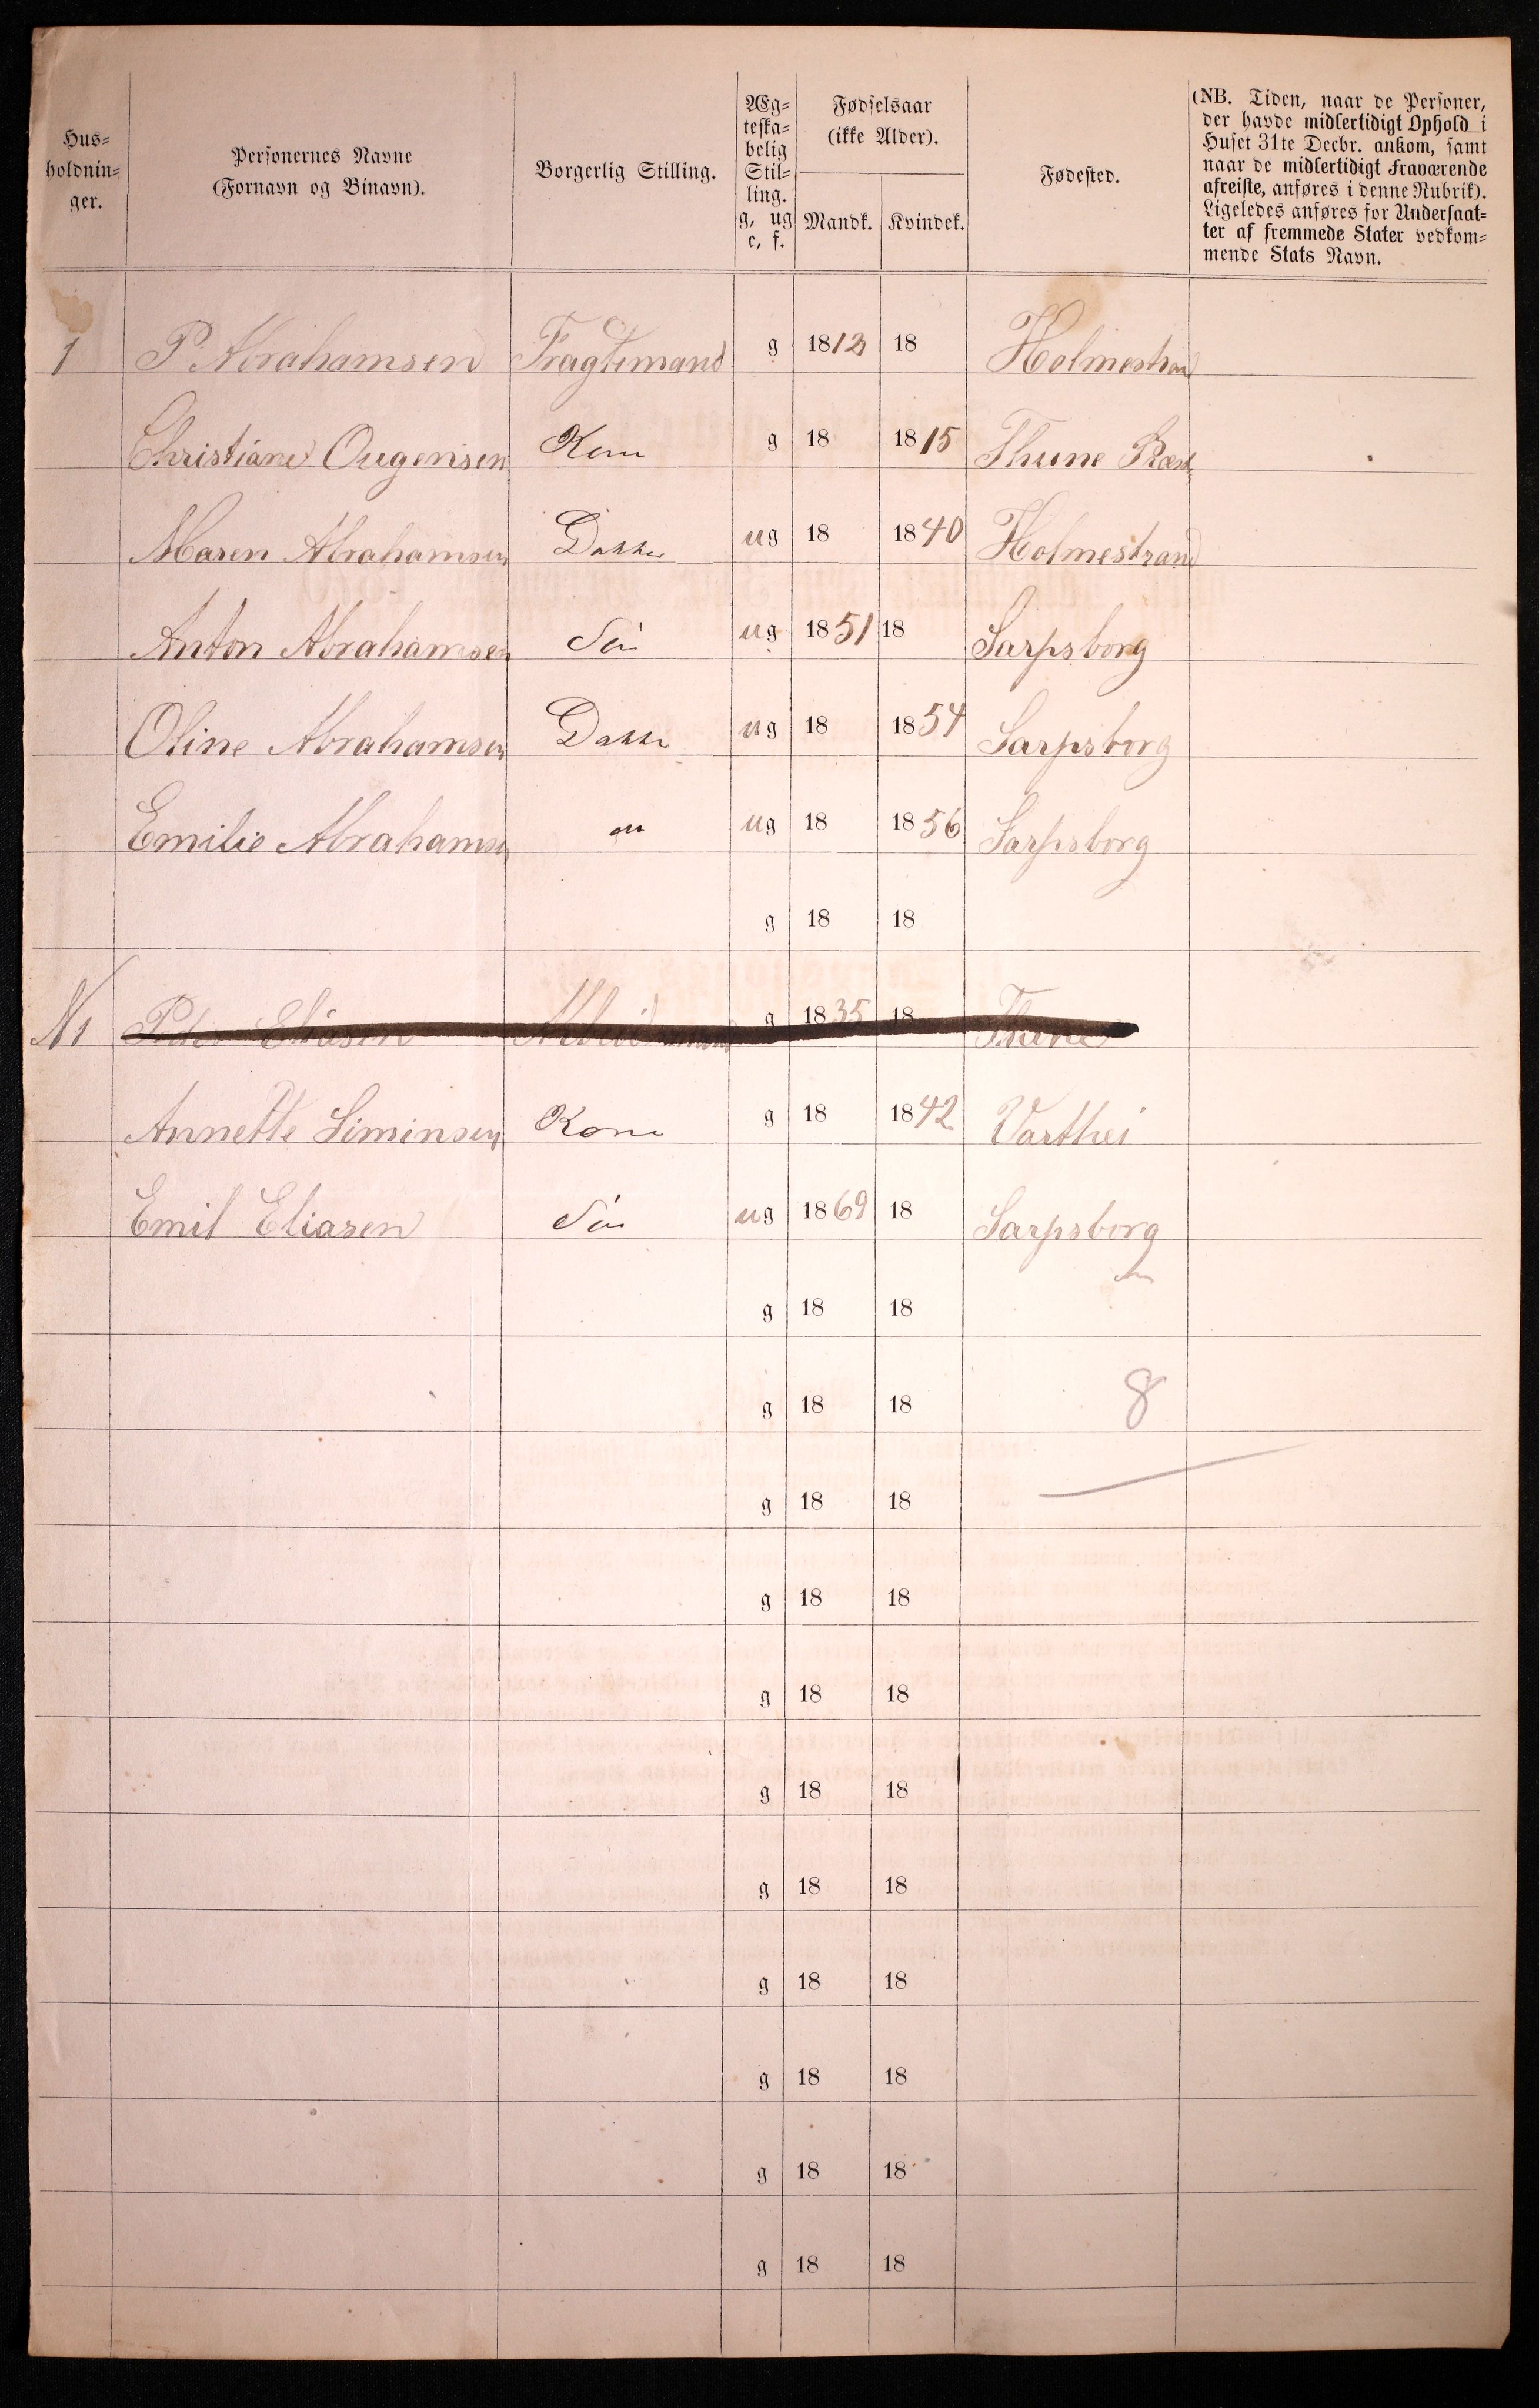 Hus-
holdnin-
ger.
Personernes Navne
(Fornavn og Binavn).
Borgerlig Stilling.
Æg-
teska-
belig
Stil-
ling.
g, ug
e, f.
Fødselsaar
(ikke Alder).
Mandk. Kvindek.
Fødested.
(NB. Tiden, naar de Personer,
der havde midlertidigt Ophold i
Huset 31te Decbr. ankom, samt
naar de midlertidigt Fraværende
afreiste, anføres i denne Rubrik).
Ligeledes anføres for Undersaat-
ter af fremmede Stater vedkom-
mende Stats Navn.
1 P. Abrahamsen Fragtemand g 1812 18 Holmestrand
Christiane Ougensen Kone g 18 1815 Thune Præst
Maren Abrahamsen Datter ug 18 1840 Holmestrand
Anton Abrahamsen Søn ug 1851 18 Sarpsborg
Oline Abrahamsen Datter ug 18 1854 Sarpsborg
Emilie Abrahamsen ug 18 1856 Sarpsborg
g 18 18
N1 Peder Eliasen Arbeidsmand g 1835 18 Thune
Annette Siminsen Kone g 18 1842 Varthei
Emil Eliasen Søn ug 1869 18 Sarpsborg
g 18 18
g 18 18 8
g 18 18
g 18 18
g 18 18
g 18 18
g 18 18
g 18 18
g 18 18
g 18 18
g 18 18